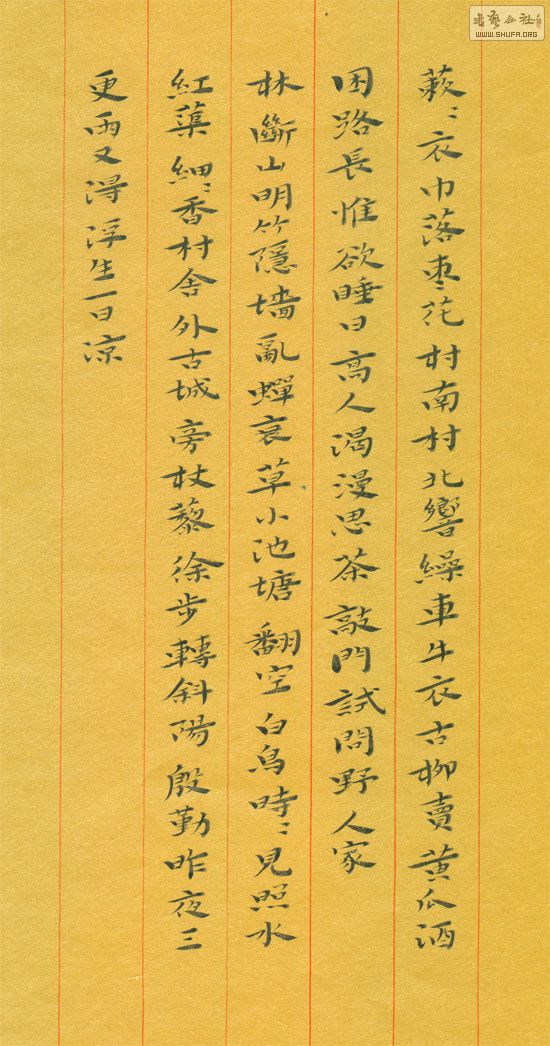 蔌〻衣巾落枣花村南村北響繰車牛衣古柳賣黄瓜酒
困路長惟欲睡日高人渴漫思茶敲門試問野人家
林斷山明竹隱墻亂蟬衰草小池塘翻空白鳥時〻見照水
紅蕖細〻香村舍外古城旁杖藜徐步轉斜陽殷勤昨夜三
更雨又淂浮生一日涼
書藝公社
WWW.SHUFA.ORG